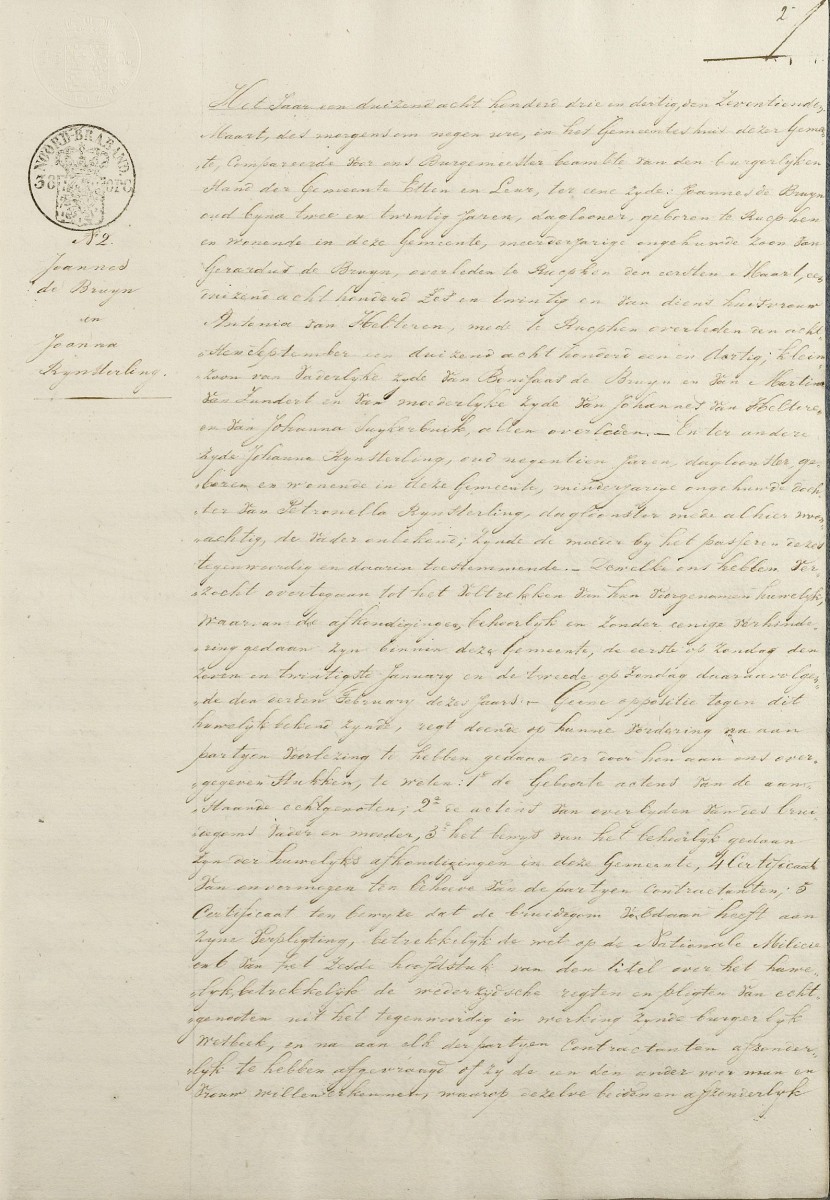 2
NOORD-BRABAND
N2.
Joannes
de Bruyn
en
Joanna
Rynsterling.
Het Jaar een duizend acht honderd drie en dertig, den Zeventienden
Maart, des morgens om negen ure, in het Gemeentes huis dezer Gemeen-
te, Compareerde voor ons Burgemeester beambte van den burgerlyken
Stand der Gemeente Etten en Leur, ter eene zyde: Joannes de Bruyn
oud byna twee en twintig Jaren, daglooner, geboren te Rucphen
en wonende in deze Gemeente, meerderjarige ongehuwde zoon van
Gerardus de Bruyn, overleden te Rucphen den eersten Maart, een
duizend acht honderd Zes en twintig en van diens huisvrouw
Antonia van Helteren, mede te Rucphen overleden den acht-
sten September een duizend acht honderd een en dertig; klein-
zoon van Vaderlyke zyde van Bonifaas de Bruyn en van Martina
Van Zundert en van moederlyke zyde van Johannes van Helteren
en van Johanna Suykerbuik, allen overleden. — En ter andere
zyde Johanna Rynsterling, oud negentien Jaren, dagloonster, ge-
boren en wonende in deze Gemeente, minderjarige ongehuwde doch-
ter van Petronella Rynsterling, dagloonster mede alhier woon-
achtig, de Vader onbekend; zynde de moeder by het passeren dezes
tegenwoordig en daarin toestemmende. — Dewelke ons hebben ver-
zocht overtegaan tot het voltrekken van hun voorgenomen huwelyk,
waarvan de afkondigingen, behoorlyk en zonder eenige verhinde-
ring gedaan zyn binnen deze Gemeente, de eerste op Zondag den
Zeven en twintigste January en de tweede op Zondag daaraanvolgen-
de den derden February dezes Jaars — Geene oppositie tegen dit
huwelyk bekend zynde, regt doende op hunne vordering na aan
partyen voorlezing te hebben gedaan der door hen aan ons over-
gegeven Stukken, te weten: 1° de Geboorte actens van de aan-
staande echtgenoten; 2° de actens van overlyden van des brui-
degoms vader en moeder, 3° het bewys van het behoorlyk gedaan
zyn der huwelyks afkondigingen in deze Gemeente, 4 Certificaat
van onvermogen ten behoeve van de partyen Contractanten; 5
Certificaat ten bewyze dat de bruidegom voldaan heeft aan
zyne verpligting, betrekkelyk de wet op de Nationale Militie
en 6 van het Zesde hoofdstuk van den titel over het huwe-
lyk, betrekkelyk de wederzydsche regten en pligten van echt-
genooten uit het tegenwoordig in werking zynde burgerlyk
Wetboek, en na aan elk der partyen Contractanten afzonder-
lyk te hebben afgevraagd of zy de een den ander voor man en
vrouw willen erkennen, waarop dezelve beiden en afzonderlyk